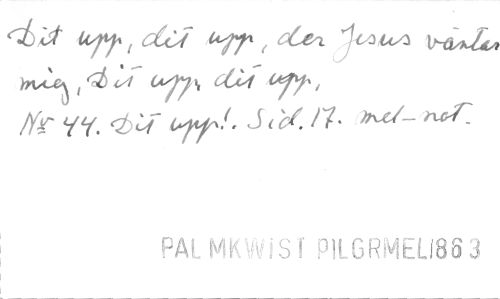 Dit upp, dit upp, der Jesus väntar
mig, Dit upp, dit upp,
Nr 44. Dit upp!. Sid. 17. mel-not.
PALMKWIST PILGRMEL1863